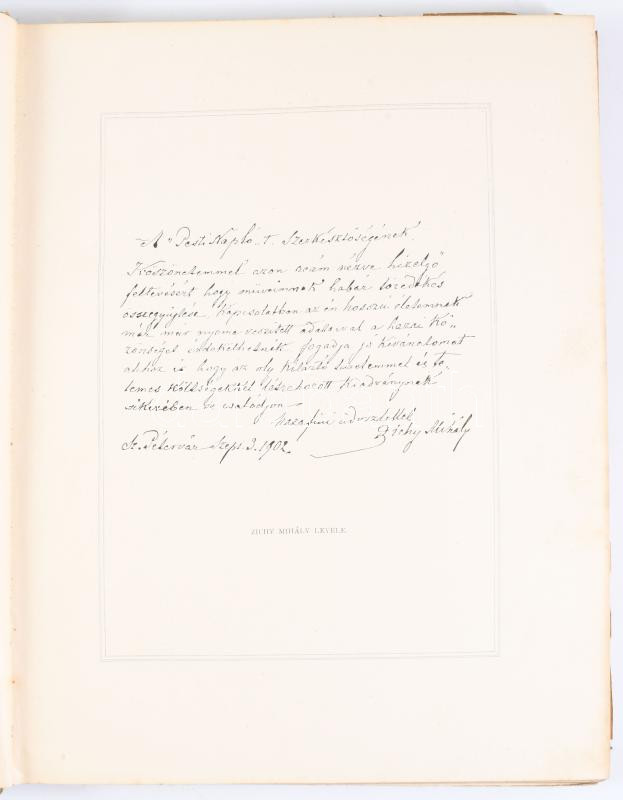 A "Pesti Napló" t. Szerkesztőségének.
Köszönetemmel azon reám nézve hizelgő
feltevésért hogy műveimnek habár töredékes
összegyüjtése, kapcsolatban az én hosszú életemnek
már nyoma veszített adataival a hazai kö-
zönséget érdekelhetnék fogadja jó kivánatomat
ahhoz is hogy az oly kitartó türelemmel és te-
temes költségekkel létrehozott kiadványnak
sikerében ne csalódjon
hazafiui üdvözlettel
Zichy Mihály
Sz. Pétervár Szept. 3. 1902.
ZICHY MIHÁLY LEVELE.